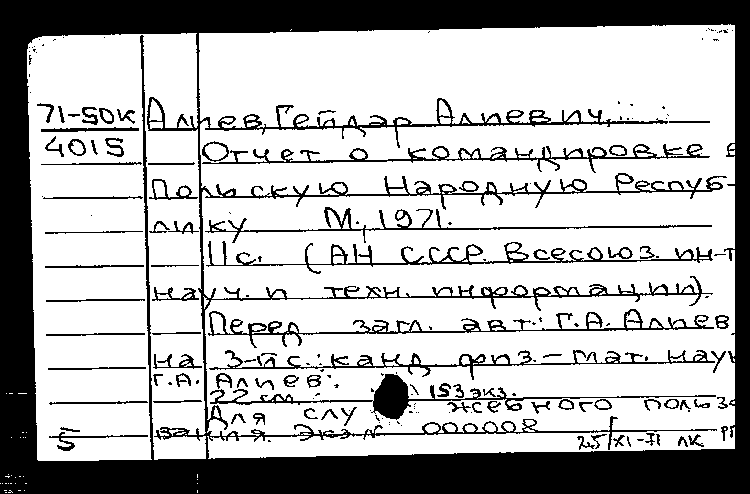 71-50к Алиев, Гейдар Алиевич,
4015 Отчет о командировке в
Польскую Народную Респуб-
лику М., 1971.
11 с. (АН СССР. Всесоюз. ин-т
науч. и техн. информации).
Перед загл. авт.: Г.А. Алиев,
на 3-й с.: канд. физ.-мат. наук
Г.А. Алиев.
22 см. 153 экз.
Для служебного пользо-
вания. Экз. № 000008
5 25/XI-71 ЛК